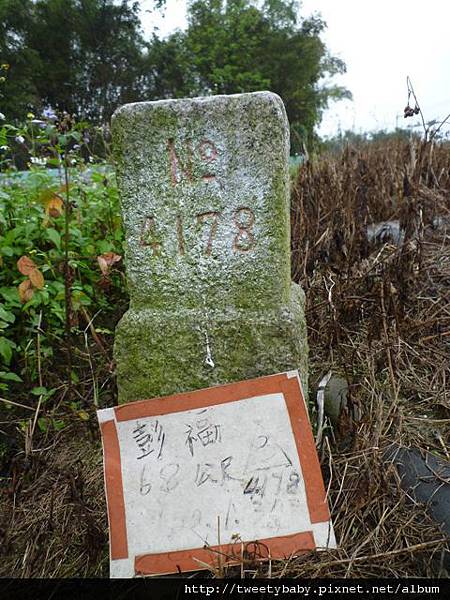 No
4178
彭福
68公尺 4178
http://tweetybaby.pixnet.net/album